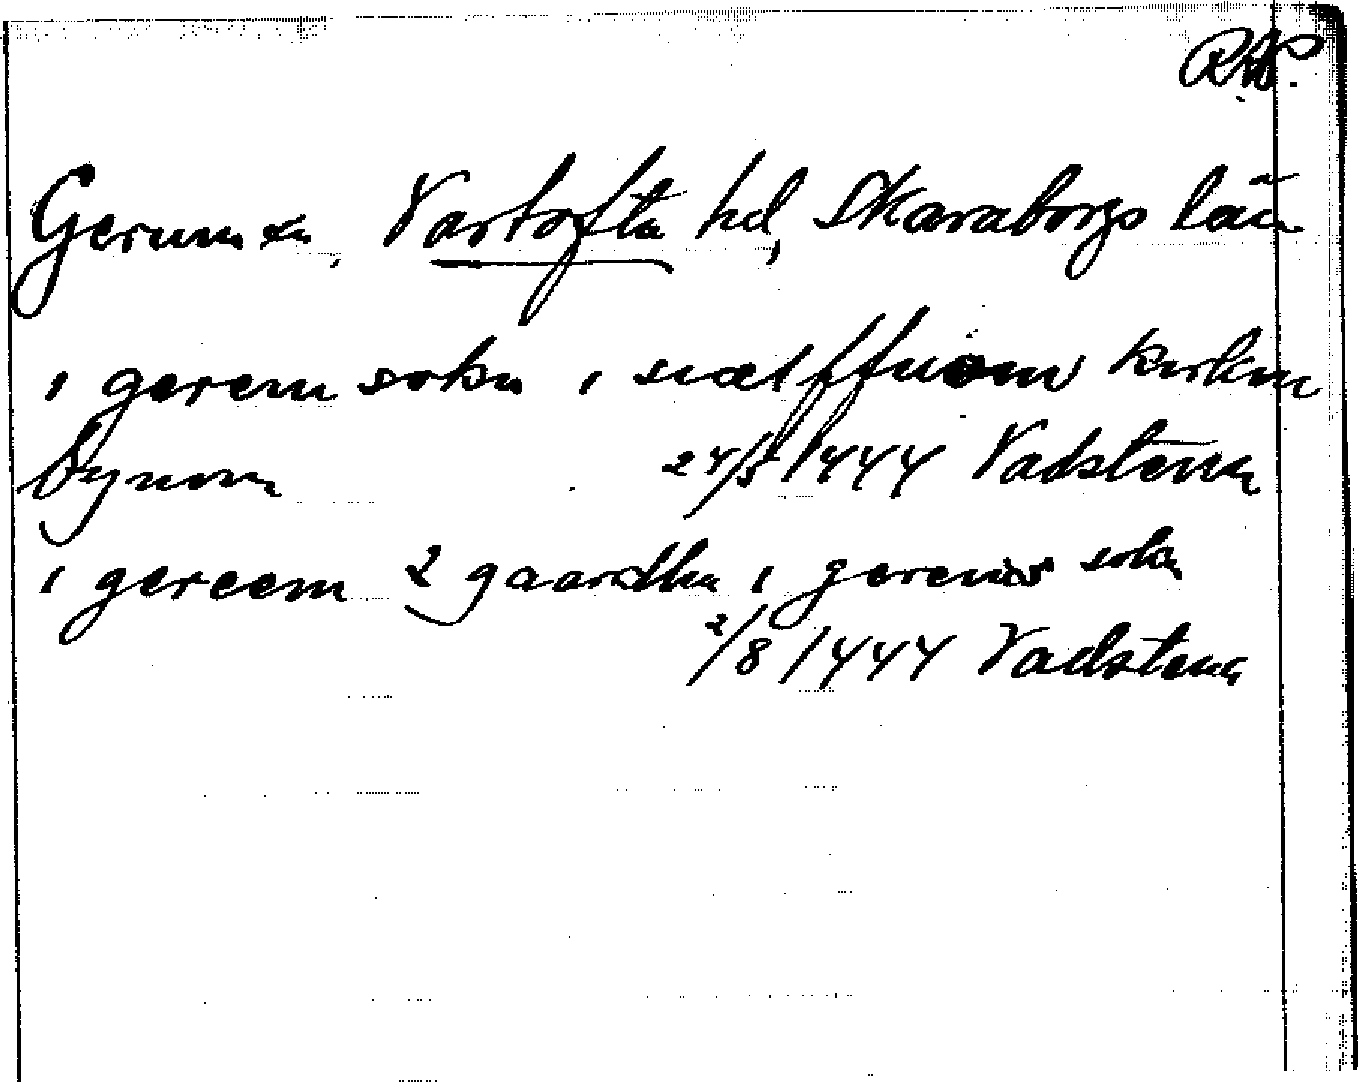 RAP.
Gerum sn, Vartofta hd, Skaraborgs län
i gerem sokn i siælffuom kirkiu
bynom 24/5 1444 Vadstena
i gereem 2 gaardha i gerems sokn
2/8 1444 Vadstena